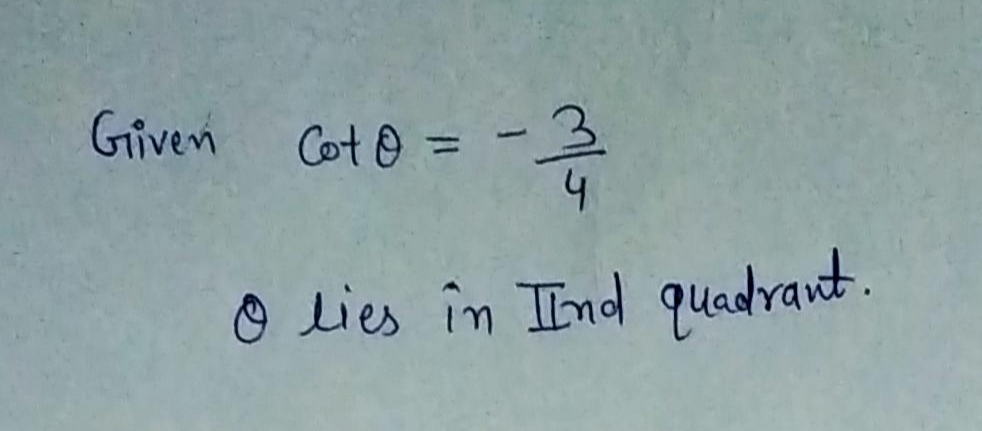 Given Cot θ = - 3/4
θ lies in IInd quadrant.